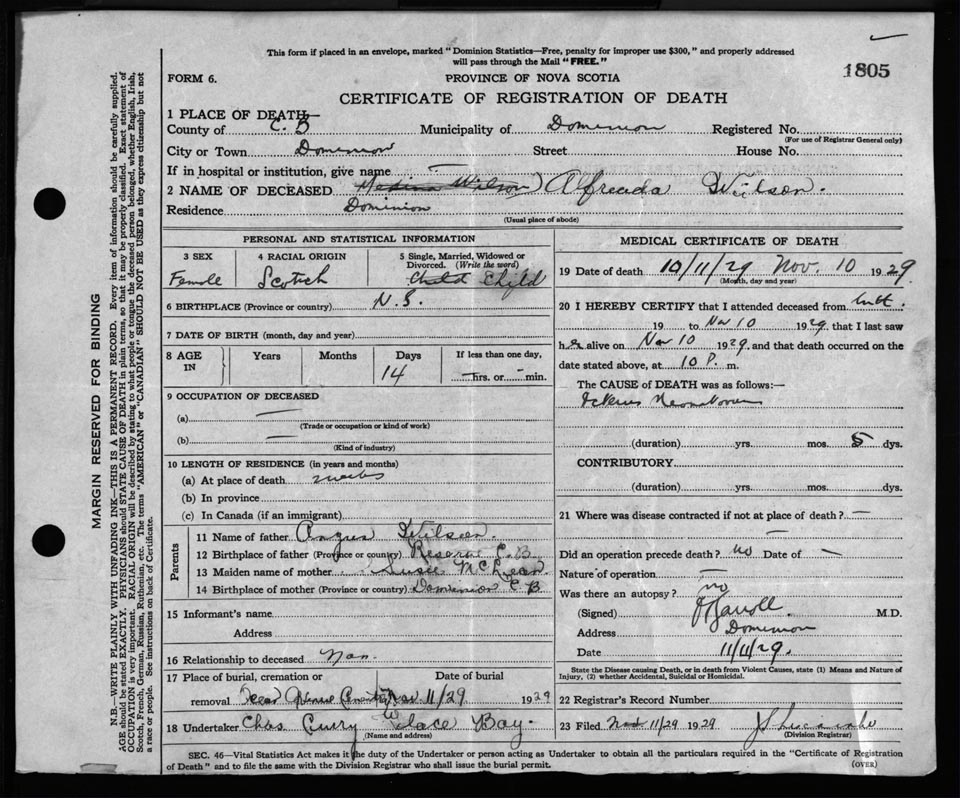 This form if placed in an envelope, marked "Dominion Statistics—Free, penalty for improper use $300," and properly addressed
will pass through the Mail "FREE."
1805
FORM 6.
PROVINCE OF NOVA SCOTIA
CERTIFICATE OF REGISTRATION OF DEATH
1 PLACE OF DEATH—
County of C. B Municipality of Dominion Registered No.
(For use of Registrar General only)
City or Town Dominion Street House No.
If in hospital or institution, give name —
2 NAME OF DECEASED Wilson) Alfreada Wilson.
Residence Dominion
(Usual place of abode)
PERSONAL AND STATISTICAL INFORMATION
3 SEX
Female
4 RACIAL ORIGIN
Scotch
5 Single, Married, Widowed or
Divorced. (Write the word)
Child Child
6 BIRTHPLACE (Province or country) N.S.
7 DATE OF BIRTH (month, day and year)
8 AGE IN Years Months Days If less than one day,
14 — hrs. or — min.
9 OCCUPATION OF DECEASED
(a) —
(Trade or occupation or kind of work)
(b) —
(Kind of industry)
10 LENGTH OF RESIDENCE (in years and months)
(a) At place of death
(b) In province
(c) In Canada (if an immigrant)
Parents
11 Name of father Angus Wilson.
12 Birthplace of father (Province or country) Reserve C.B.
13 Maiden name of mother Susie McLean
14 Birthplace of mother (Province or country) Dominion C B
15 Informant's name
Address
16 Relationship to deceased
17 Place of burial, cremation or Date of burial
removal Nov 11/29 1929
18 Undertaker Chas. Curry Glace Bay.
(Name and address)
MEDICAL CERTIFICATE OF DEATH
19 Date of death 10/11/29 Nov. 10 1929
(Month, day and year)
20 I HEREBY CERTIFY that I attended deceased from
19 to Nov 10 1929, that I last saw
her alive on Nov 10 1929, and that death occurred on the
date stated above, at 10 P. m.
The CAUSE of DEATH was as follows:—
Icterus Neonatorum
(duration) yrs. mos. 5 dys.
CONTRIBUTORY
(duration) yrs. mos. dys.
21 Where was disease contracted if not at place of death? —
—
Did an operation precede death? no Date of —
Nature of operation —
Was there an autopsy? no
(Signed) M.D.
Address Dominion
Date 11/11/29.
State the Disease causing Death, or in death from Violent Causes, state (1) Means and Nature of
Injury, (2) whether Accidental, Suicidal or Homicidal.
22 Registrar's Record Number
23 Filed Nov 11/29 1929
(Division Registrar)
SEC. 46—Vital Statistics Act makes it the duty of the Undertaker or person acting as Undertaker to obtain all the particulars required in the "Certificate of Registration
of Death" and to file the same with the Division Registrar who shall issue the burial permit.
(OVER)
MARGIN RESERVED FOR BINDING
N.B.—WRITE PLAINLY WITH UNFADING INK—THIS IS A PERMANENT RECORD. Every item of information should be carefully supplied.
AGE should be stated EXACTLY. PHYSICIANS should STATE CAUSE OF DEATH in plain terms, so that it may be properly classified. Exact statement of
OCCUPATION is very important. RACIAL ORIGIN will be described by stating to what people or tongue the deceased person belonged, whether English, Irish,
Scotch, French, German, Russian, Ruthenian, etc. The terms "AMERICAN" or "CANADIAN" SHOULD NOT BE USED as they express citizenship but not
a race or people. See instructions on back of Certificate.